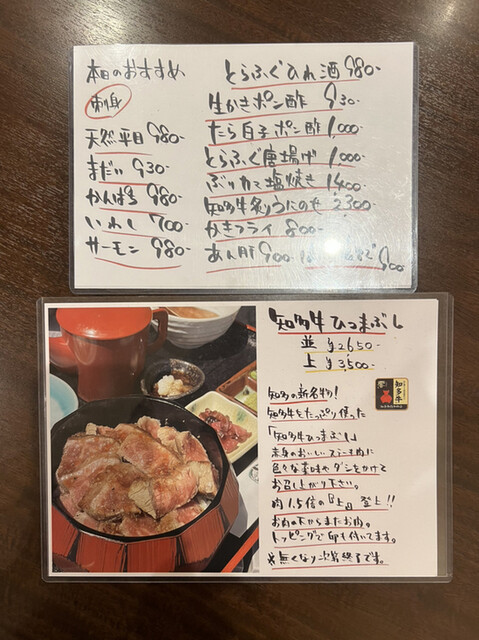 本日のおすすめ
刺身
天然平目 980-
まだい 930-
かんぱち 980-
いわし 700-
サーモン 980-
とらふぐひれ酒 980-
生かきポン酢 930-
たら白子ポン酢 1,000-
とらふぐ唐揚げ 1,000-
ぶりカマ塩焼き 1,400-
知多牛炙りうにのせ 2,300-
かきフライ 800-
あん肝 900-
900
知多牛ひつまぶし
並 ¥2650-
上 ¥3,500-
知多牛
知多の新名物!
知多牛をたっぷり使った
「知多牛ひつまぶし」
赤身のおいしいステーキ肉に
色々な薬味やダシをかけて
お召し上がり下さい。
肉1.5倍の『上』登上!!
お肉の下からまたお肉。
トッピングで卵も付いてます。
*無くなり次第終了です。